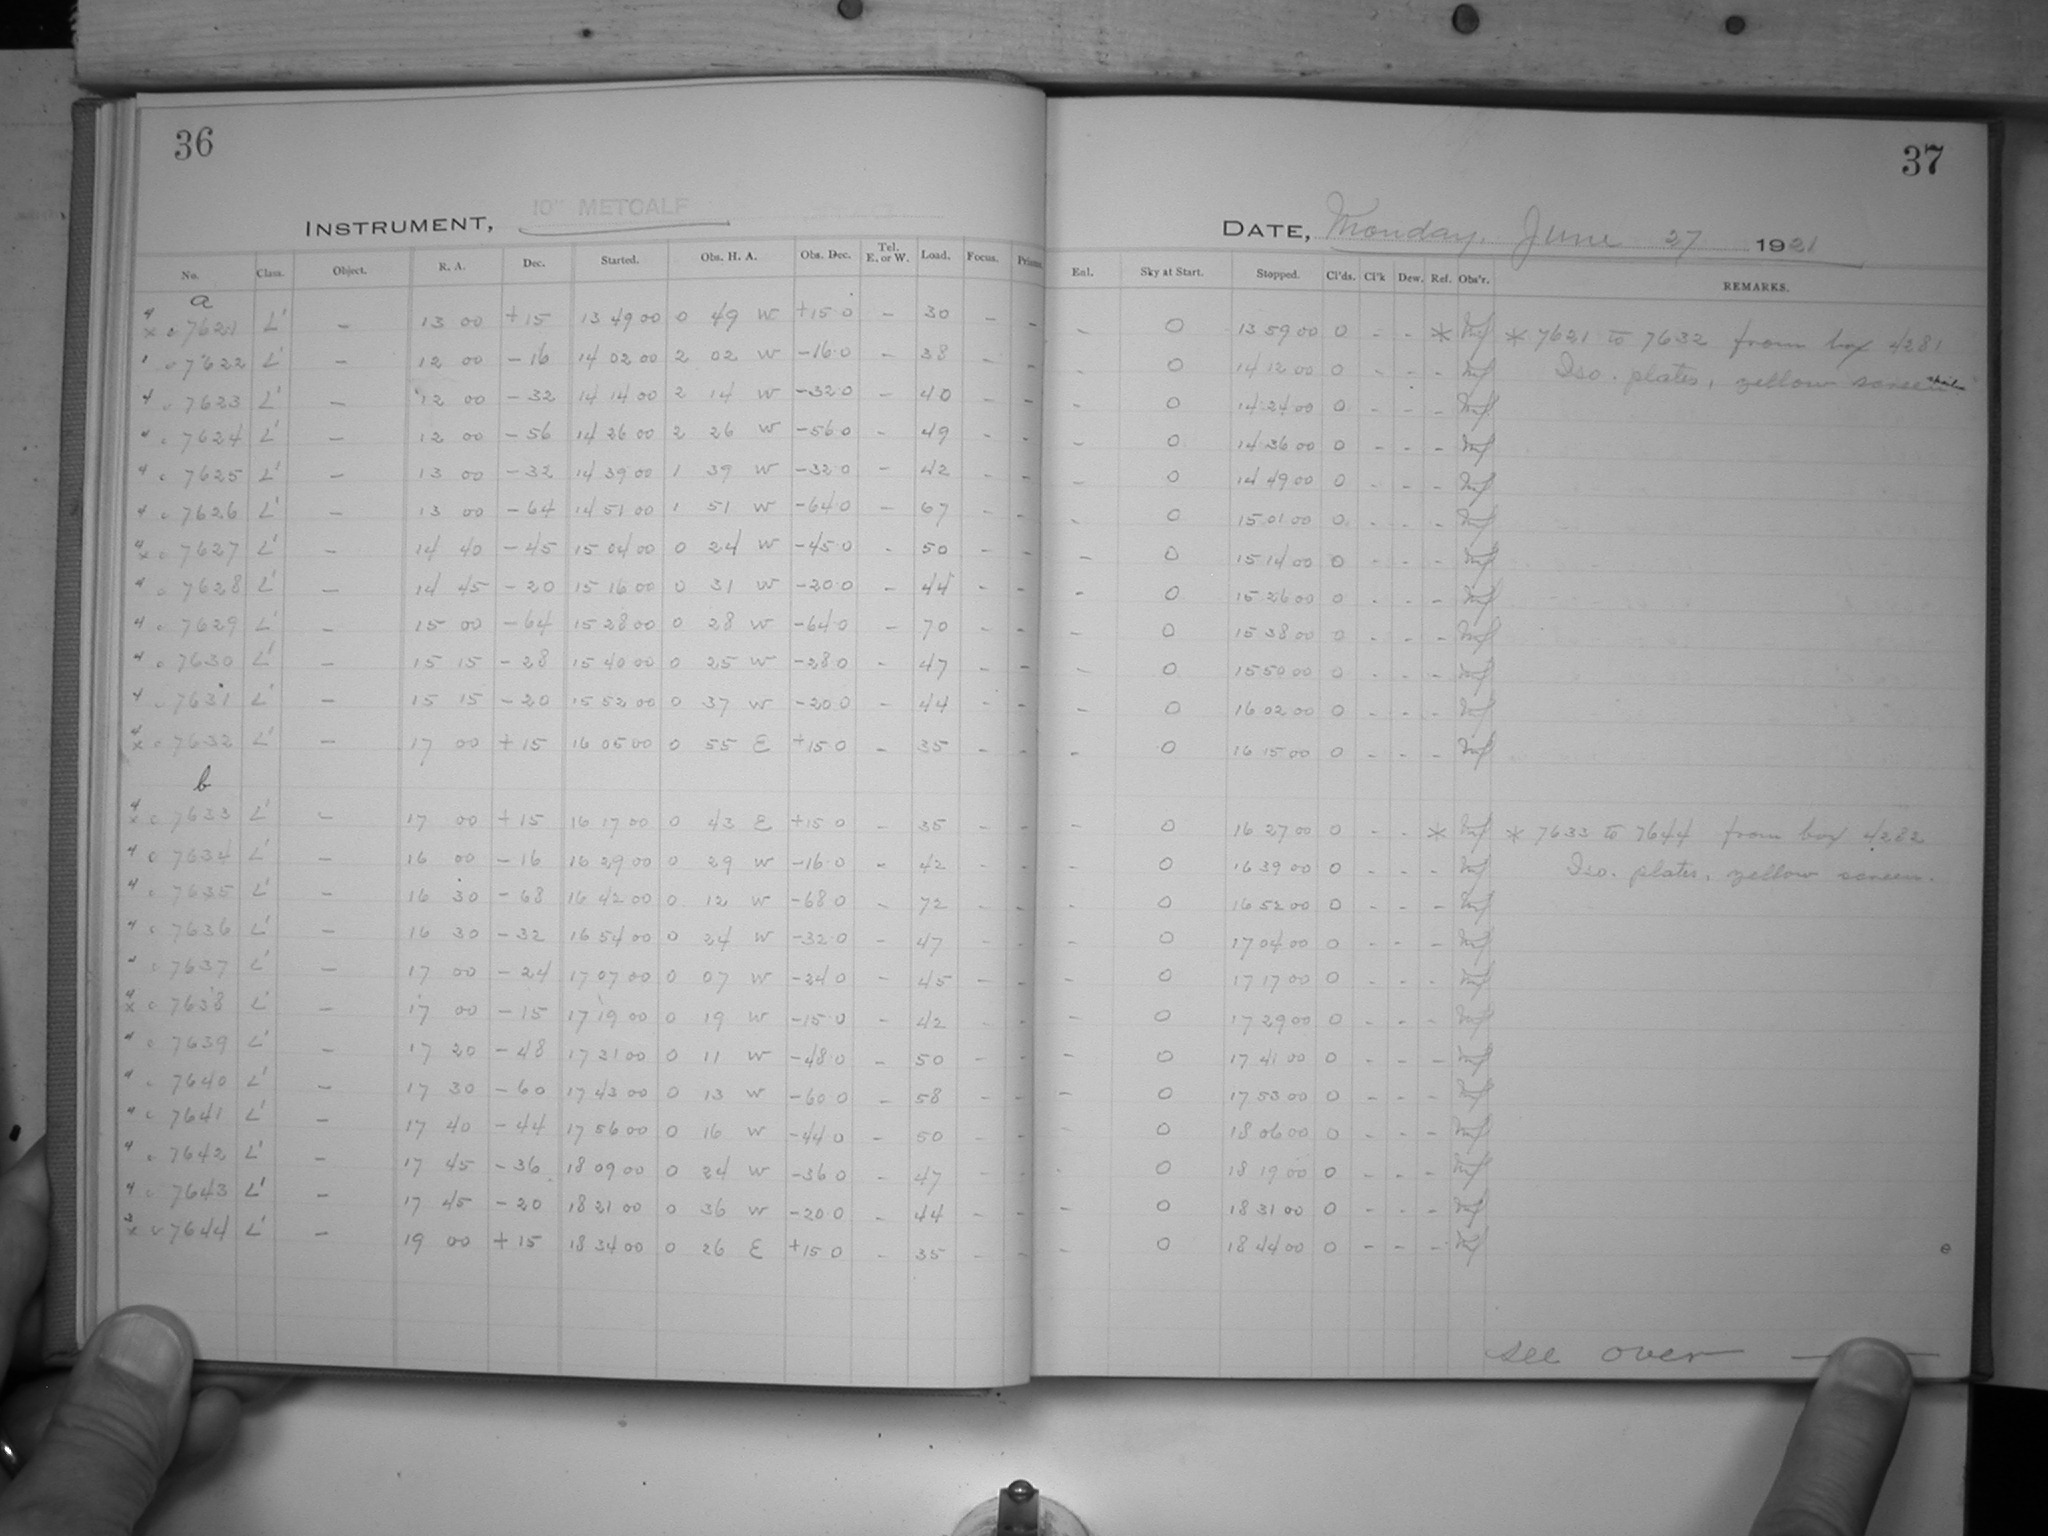 36
37
INSTRUMENT, 10" METCALF
DATE, Monday, June 27 1921
No. Class. Object. R. A. Dec. Started. Obs. H. A. Obs. Dec. Tel. E. or W. Load. Focus. Prisms. Enl. Sky at Start. Stopped. Cl'ds. Cl'k Dew. Ref. Obs'r. REMARKS.
a
7621 L' – 13 00 +15 13 49 00 0 49 W +15 0 – 30 – – – 0 13 59 00 0 - - * * 7621 to 7632 from box 4281
7622 L' – 12 00 –16 14 02 00 2 02 W –16.0 – 38 – – – 0 14 12 00 0 - - - Iso. plates, yellow screen
7623 L' – 12 00 –32 14 14 00 2 14 W –32 0 – 40 – – – 0 14 24 00 0 - - -
7624 L' – 12 00 –56 14 26 00 2 26 W –56 0 – 49 – – – 0 14 36 00 0 - - -
7625 L' – 13 00 –32 14 39 00 1 39 W –32 0 – 42 – – – 0 14 49 00 0 - - -
7626 L' – 13 00 –64 14 51 00 1 51 W –64 0 – 67 – – – 0 15 01 00 0 - - -
7627 L' – 14 40 –45 15 04 00 0 24 W –45.0 – 50 – – – 0 15 14 00 0 - - -
7628 L' – 14 45 –20 15 16 00 0 31 W –20.0 – 44 – – – 0 15 26 00 0 - - -
7629 L' – 15 00 –64 15 28 00 0 28 W –64 0 – 70 – – – 0 15 38 00 0 - - -
7630 L' – 15 15 –28 15 40 00 0 25 W –28 0 – 47 – – – 0 15 50 00 0 - - -
7631 L' – 15 15 –20 15 52 00 0 37 W –20 0 – 44 – – – 0 16 02 00 0 - - -
7632 L' – 17 00 +15 16 05 00 0 55 E +15 0 – 35 – – – 0 16 15 00 0 - - -
b
7633 L' – 17 00 +15 16 17 00 0 43 E +15 0 – 35 – – – 0 16 27 00 0 - - * * 7633 to 7644 from box 4282
7634 L' – 16 00 –16 16 29 00 0 29 W –16.0 – 42 – – – 0 16 39 00 0 - - - Iso. plates, yellow screen.
7635 L' – 16 30 –68 16 42 00 0 12 W –68 0 – 72 – – – 0 16 52 00 0 - - -
7636 L' – 16 30 –32 16 54 00 0 24 W –32.0 – 47 – – – 0 17 04 00 0 - - -
7637 L' – 17 00 –24 17 07 00 0 07 W –24 0 – 45 – – – 0 17 17 00 0 - - -
7638 L' – 17 00 –15 17 19 00 0 19 W –15.0 – 42 – – – 0 17 29 00 0 - - -
7639 L' – 17 20 –48 17 31 00 0 11 W –48.0 – 50 – – – 0 17 41 00 0 - - -
7640 L' – 17 30 –60 17 43 00 0 13 W –60 0 – 58 – – – 0 17 53 00 0 - - -
7641 L' – 17 40 –44 17 56 00 0 16 W –44 0 – 50 – – – 0 18 06 00 0 - - -
7642 L' – 17 45 –36 18 09 00 0 24 W –36 0 – 47 – – – 0 18 19 00 0 - - -
7643 L' – 17 45 –20 18 21 00 0 36 W –20 0 – 44 – – – 0 18 31 00 0 - - -
7644 L' – 19 00 +15 18 34 00 0 26 E +15 0 – 35 – – – 0 18 44 00 0 - - -
see over